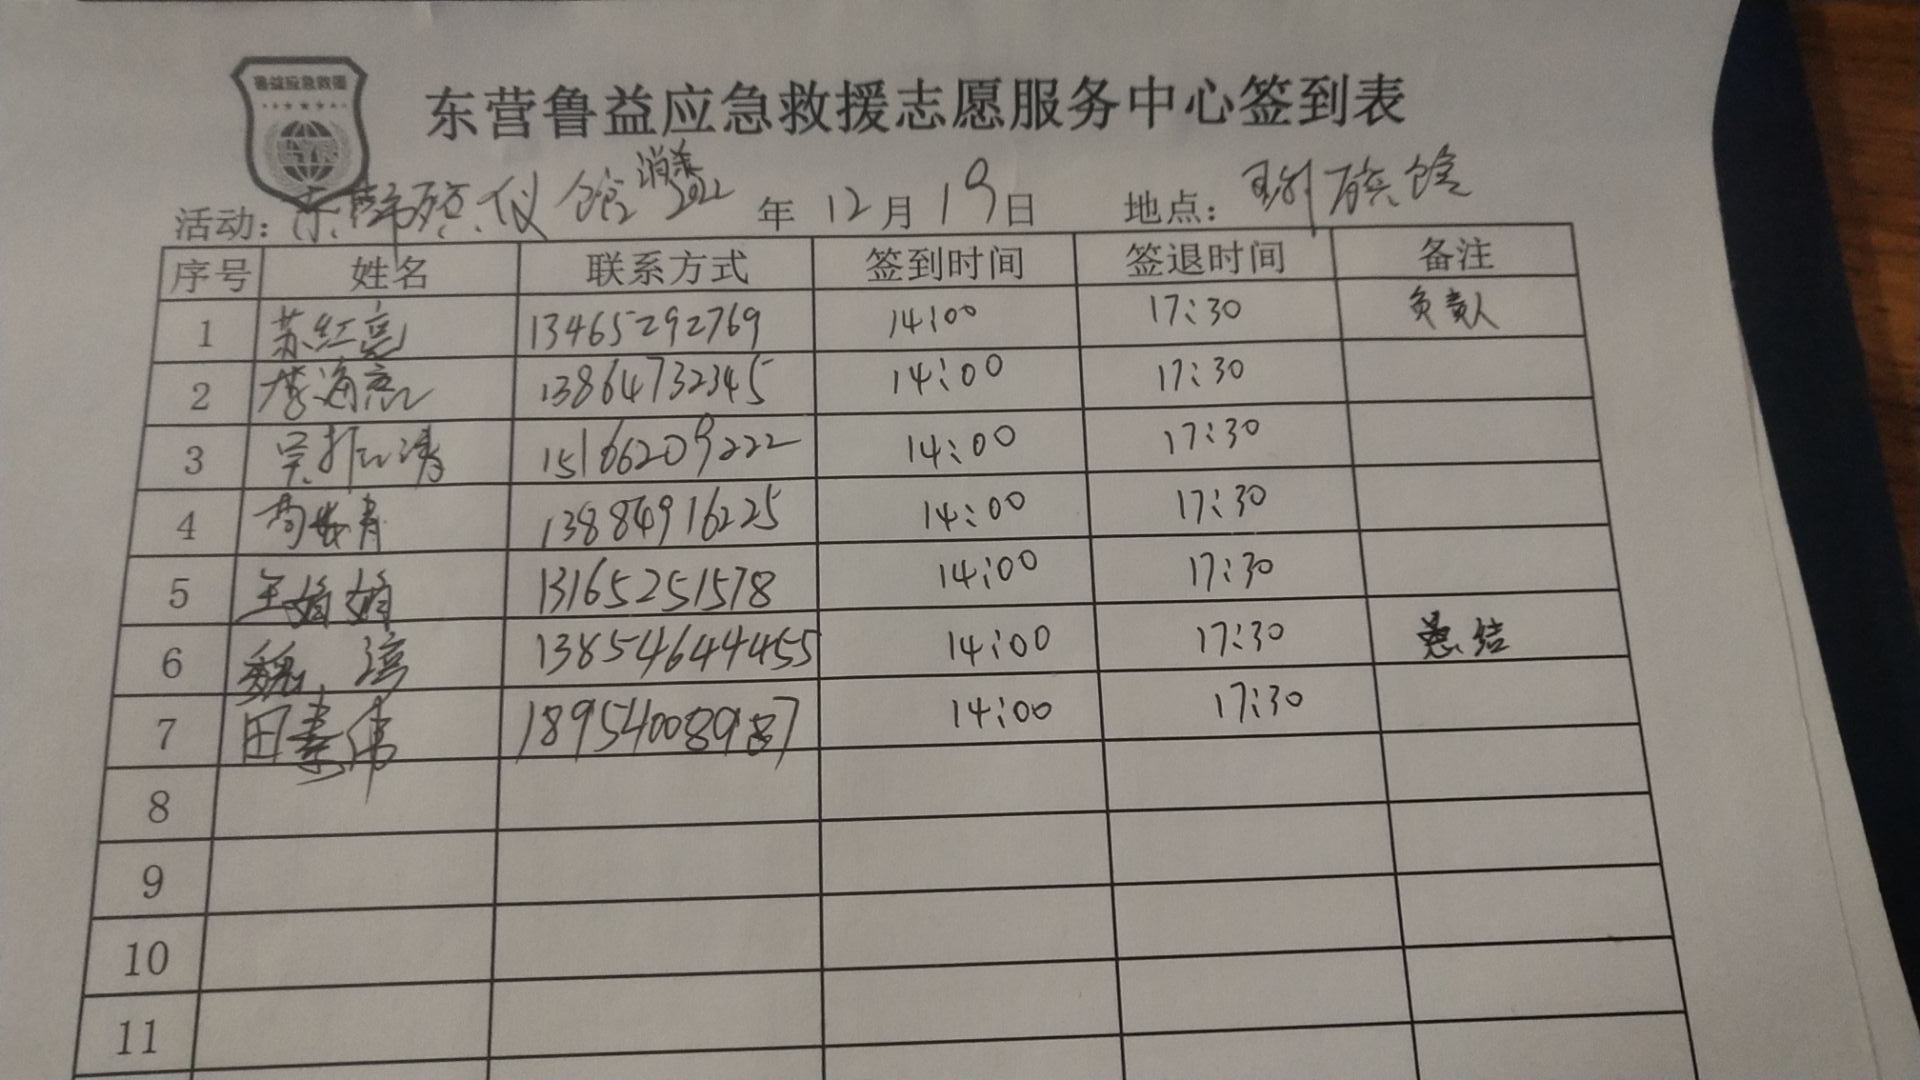 鲁益应急救援
东营鲁益应急救援志愿服务中心签到表
活动: 东营殡仪馆消杀 2022 年 12 月 19 日 地点: 殡馆
序号 姓名 联系方式 签到时间 签退时间 备注
1 苏红亮 13465292769 14:00 17:30 负责人
2 李海亮 13864732345 14:00 17:30
3 清 15166209222 14:00 17:30
4 青 13884916225 14:00 17:30
5 王娟娟 13165251578 14:00 17:30
6 魏 13854644455 14:00 17:30 总结
7 田素伟 18954008987 14:00 17:30
8
9
10
11